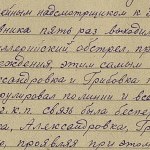 ейным надсмотрщиком к
вника пять раз выходил
ллерийский обстрел пр
еждения, этим самым
сандровка и Грибовка п
пулировал помехи и вос
г.к.п. связь была беспе
ка, Александровка, Гр
о, проявляя при этом